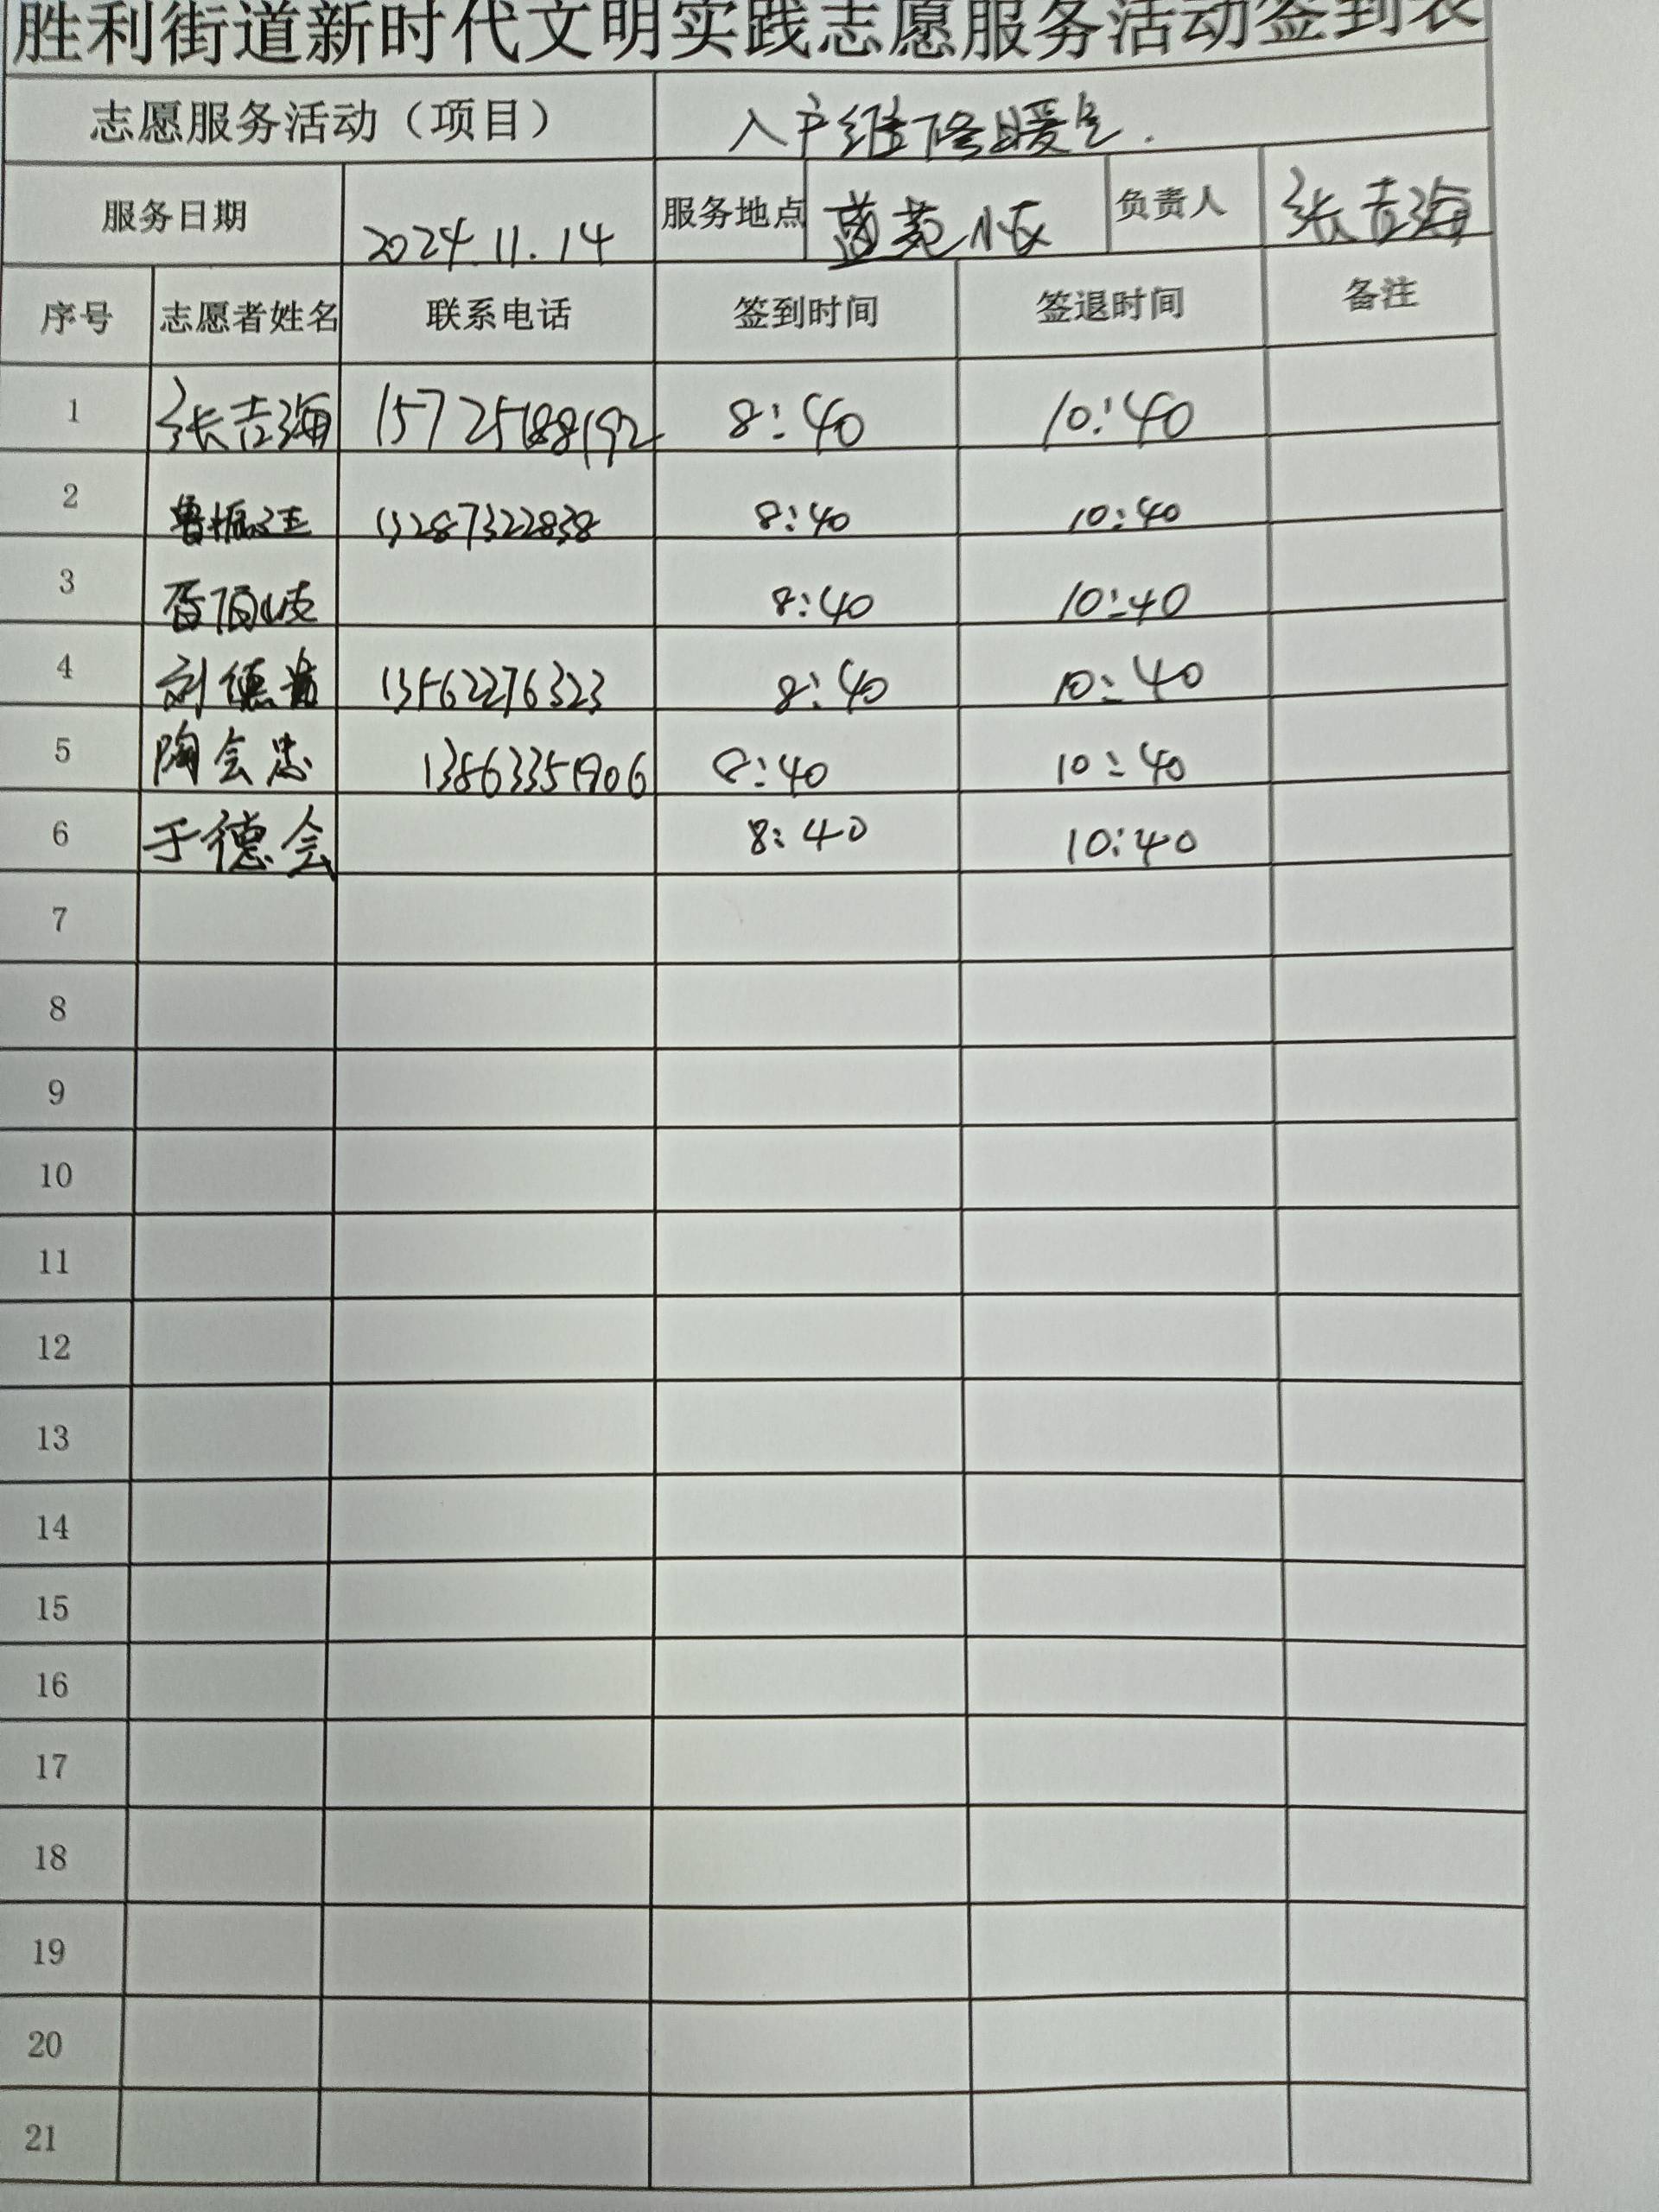 胜利街道新时代文明实践志愿服务活动签到表
志愿服务活动（项目） 入户维修暖气.
服务日期 2024.11.14 服务地点 蓝苑小区 负责人 张吉海
序号 志愿者姓名 联系电话 签到时间 签退时间 备注
1 张吉海 15725188192 8:40 10:40
2 13287322838 8:40 10:40
3 8:40 10:40
4 刘德 13562276323 8:40 10:40
5 陶会忠 13863351906 8:40 10:40
6 于德会 8:40 10:40
7
8
9
10
11
12
13
14
15
16
17
18
19
20
21